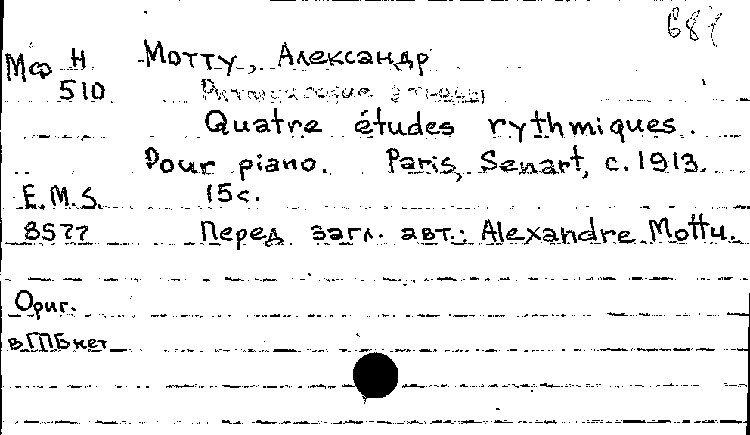 Мф Н Мотту, Александр
510 Ритмические этюды
Quatre études rythmiques.
Pour piano. Paris, Senart, c.1913.
E.M.S. 15с.
8577 Перед загл. авт.: Alexandre Mottu.
Ориг.
в ГПБ нет